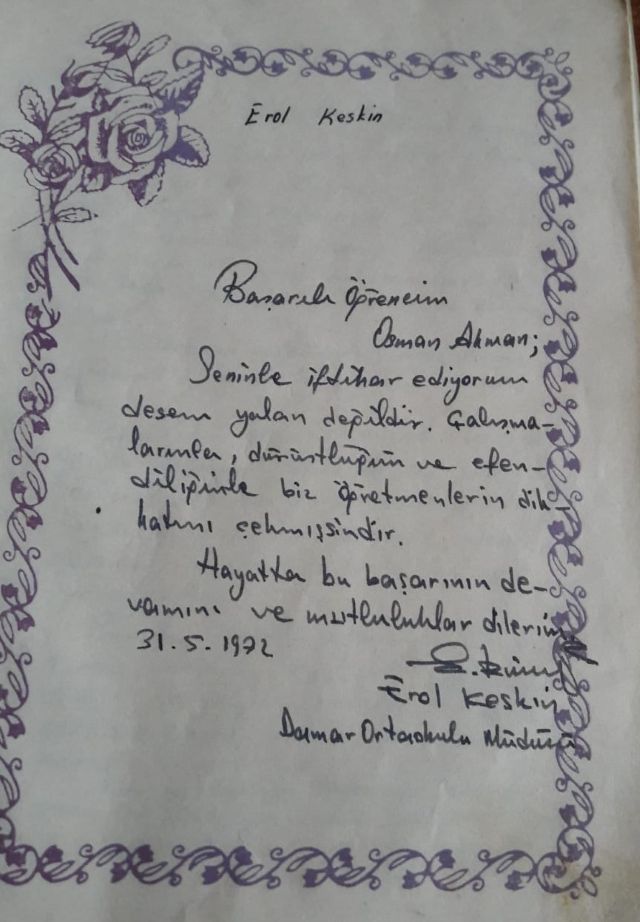 Erol Keskin
Başarılı Öğrencim
Osman Akman;
Seninle iftihar ediyorum
desem yalan değildir. Çalışma-
larınla, dürüstlüğün ve efen-
diliğinle biz öğretmenlerin dik-
katını çekmişsindir.
Hayatta bu başarının de-
vamını ve mutluluklar dilerim
31.5.1972
Erol Keskin
Damar Ortaokulu Müdürü